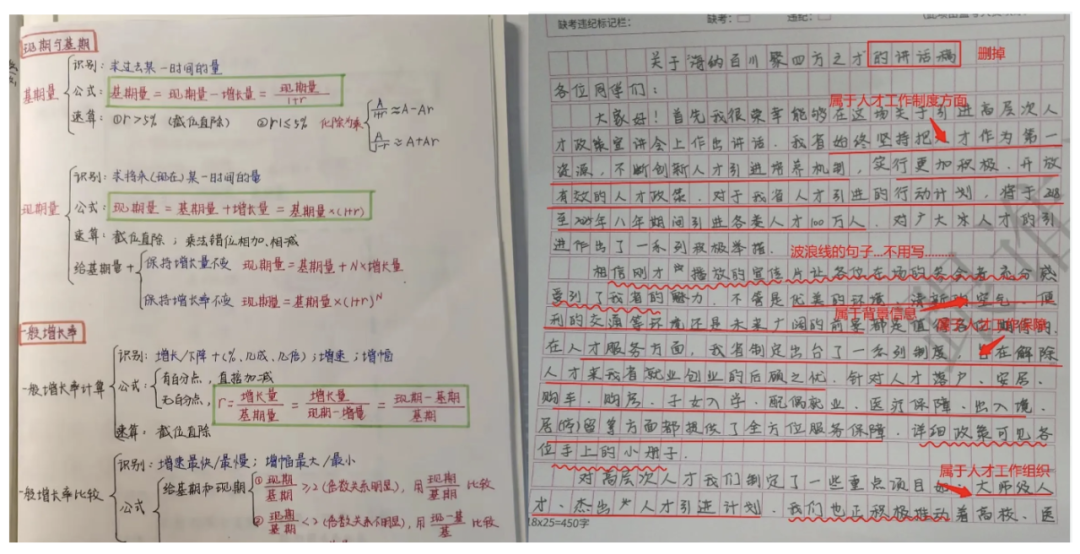 现期与基期
识别：求过去某一时间的量
基期量
公式：基期量＝现期量－增长量＝现期量/1+r
速算：①r>5%（截位直除） ②|r|≤5% 化除为乘
A/1+r≈A-Ar
A/1-r≈A+Ar
识别：求将来(现在)某一时间的量
现期量
公式：现期量＝基期量＋增长量＝基期量×(1+r)
速算：截位直除；乘法错位相加、相减
给基期量＋
保持增长量不变 现期量＝基期量＋N×增长量
保持增长率不变 现期量＝基期量×(1+r)^N
一般增长率
识别：增长/下降＋(%、几成、几倍)；增速；增幅
一般增长率计算
公式：
有百分点，直接加减
无百分点，r=增长量/基期量＝增长量/现期－增量＝现期－基期/基期
速算：截位直除
识别：增速最快/最慢；增幅最大/最小
一般增长率比较
公式
给基期和现期
①现期/基期≥2(倍数关系明显)，用现期/基期比较
②现期/基期<2(倍数关系不明显)，用现－基/基比较
缺考违纪标记栏：
缺考：□
违纪：□
关于"海纳百川聚四方之才"的讲话稿
删掉
各位同学们：
属于人才工作制度方面
大家好！首先我很荣幸能够在这场关于引进高层次人
才政策宣讲会上作出讲话。我省始终坚持把人才作为第一
资源，不断创新人才引进培养机制，实行更加积极、开放
有效的人才政策。对于我省人才引进的行动计划，将于2018
至2025年八年期间引进各类人才100万人，对广大水人才的引
进作出了一系列积极举措。
波浪线的句子...不用写.........
相信刚才播放的宣传片让各位在场的各会者充分感
受到了我省的魅力，不管是优美的环境、清新的空气、便
属于背景信息
属于人才工作保障
利的交通等环境还是未来广阔的前景都是值得
在人才服务方面，我省制定出台了一系列制度，旨在解除
人才来我省就业创业的后顾之忧。针对人才落户、安居、
购车、购房、子女入学、配偶就业、医疗保障、出入境、
居(停)留等方面都提供了全方位服务保障，详细政策可见各
位手上的小册子。
属于人才工作组织
对高层次人才我们制定了一些重点项目如：大师级人
才、杰出人才引进计划。我们也正积极推动着高校、医
18x25=450字